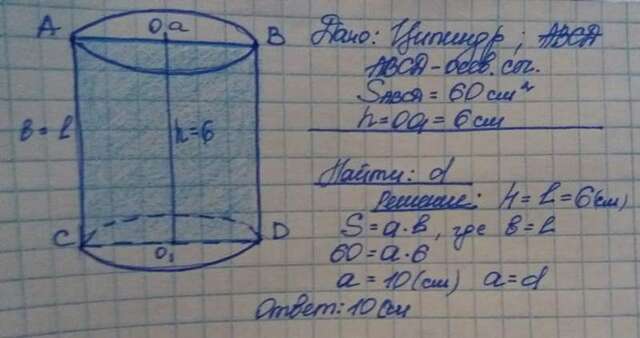 A O a B
в = l h=6
C O₁ D
Дано: Цилиндр; ABCD
ABCD - осев. сеч.
SABCD = 60 см²
h = OO₁ = 6 см
Найти: d
Решение: h = l = 6(см)
S = a · в, где в = l
60 = a · 6
a = 10 (см) a = d
Ответ: 10 см